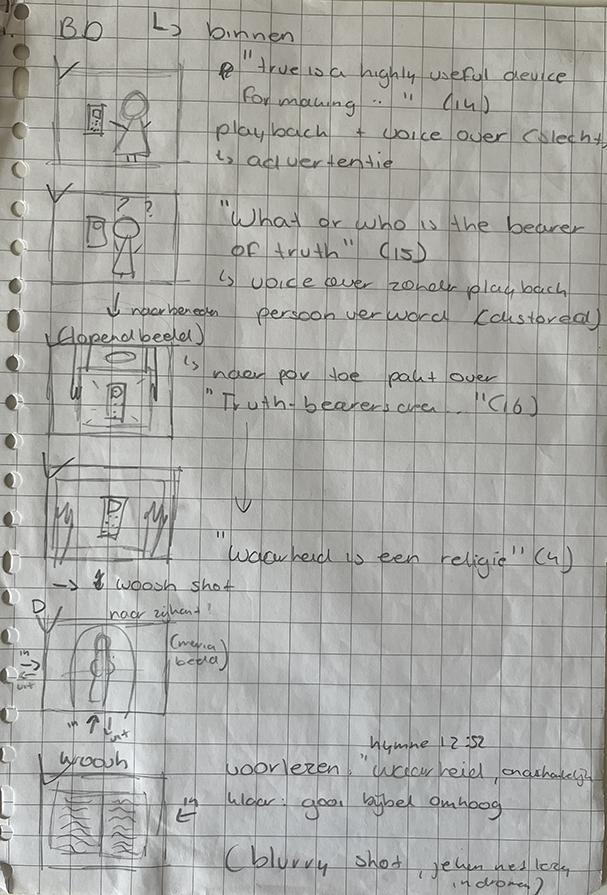 BD ↳ binnen
"true is a highly useful device
for making .. " (14)
playback + voice over (slecht)
↳ advertentie
? ?
"What or who is the bearer
of truth" (15)
↳ voice over zonder playback
↓ naar beneden persoon verword (distored)
(lopend beeld)
↳ naar pov toe pakt over
"Truth-bearers are .. "(16)
"Waarheid is een religie" (4)
→ woosh shot
naar zijkant!
D
(maria
beeld)
in
uit
in ↑↓ uit
hymne 12:52
woosh
voorlezen, "waarheid, onafhankelijk
klaar: gooi bijbel omhoog
in
(blurry shot, jehan net
in dromen?)